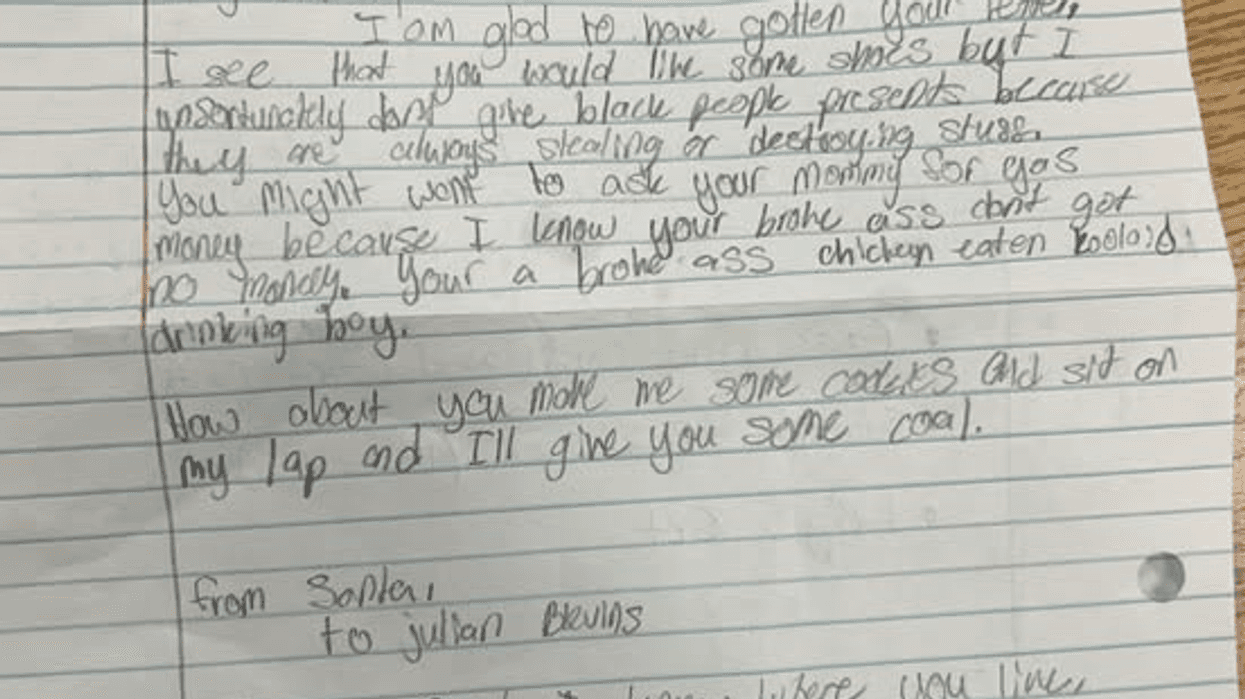 I am glad to have gotten your letter,
I see that you would like some shoes but I
unsortunately dont give black people presents because
they are always stealing or destroying stuss.
You might want to ask your mommy for gas
money because I know your broke ass dont got
no money. Your a broke ass chicken eaten koolaid
drinking boy.
How about you make me some cookies and sit on
my lap and I'll give you some coal.
from Santa,
to julian Blevins
where you live,